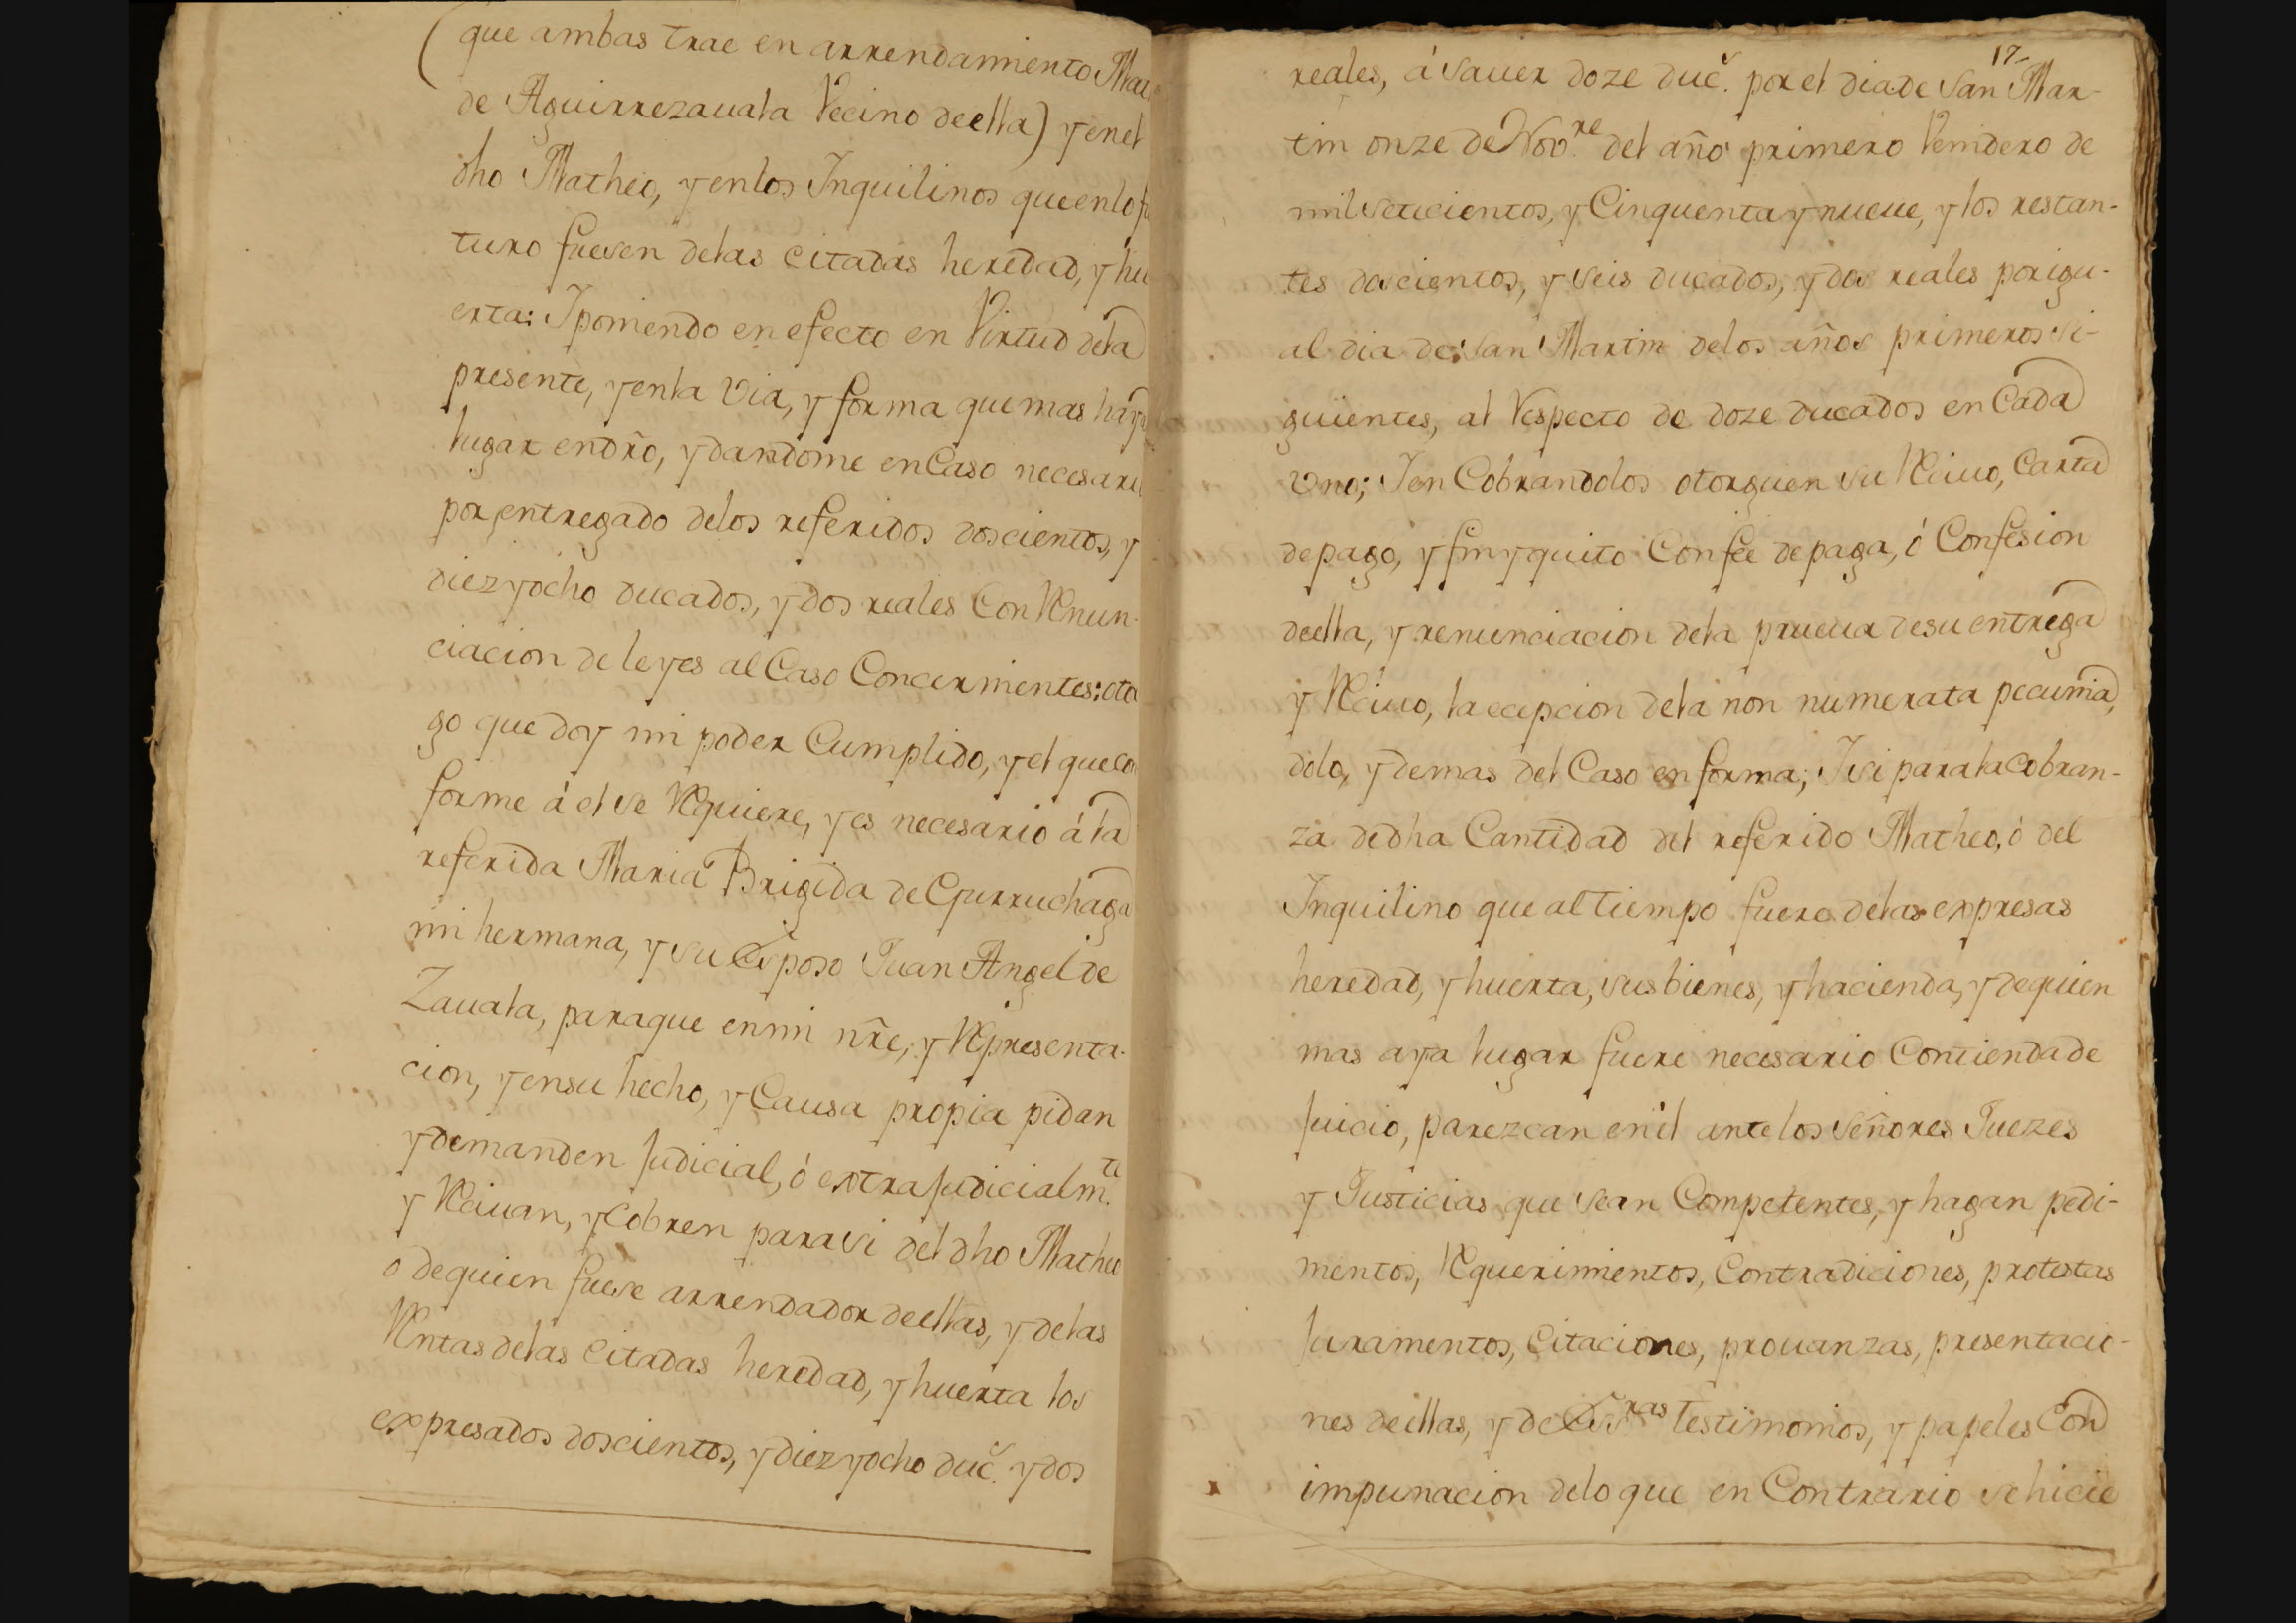 (que ambas trae en arrendamiento
de Aguirrezauala Vecino deella) y enel
dho Matheo, y enlos Inquilinos que enlo fu
turo fuesen delas citadas heredad, y hu
erta: I poniendo en efecto en Virtud dela
presente, y enla via, y forma que mas haya
lugar endr̃o, y dandome en Caso necesario
por entregado delos referidos doscientos, y
diez y ocho ducados, y dos reales Con Renun-
ciacion de leyes al Caso Concernientes: oto
go que doy mi poder Cumplido, y el que con
forme á el se Requiere, y es necesario á la
referida Maria Brigida de Egurruchaga
mi hermana, y su esposo Juan Angel de
Zauala, paraque enmi nr̃e, y Representa-
cion, y ensu hecho, y Causa propia pidan
y demanden Judicial, ó extraJudicialm.te
y Reciuan, y Cobren parasi del dho Matheo
o dequien fuese arrendador deellas, y delas
Rentas delas Citadas heredad, y huerta los
expresados doscientos, y diez y ocho duc̃. y dos
17
reales, á sauer doze duc̃. por el dia de San Mar-
tin onze de Nov.re del año primero Venidero de
mil setecientos, y Cinquenta y nueue, y los restan-
tes doscientos, y seis ducados, y dos reales por igu-
al dia de San Martin delos años primeros si-
guientes, al Respecto de doze ducados en Cada
vno; I en Cobrandolos otorguen su Reciuo, Carta
depago, y fin y quito Con fee de paga, ó Confesion
deella, y renunciacion dela prueua desu entrega
y Reciuo, la ecepcion dela non numerata pecunia,
dolo, y demas del Caso en forma; I si para la Cobran-
za dedha Cantidad del referido Matheo, ó del
Inquilino que al tiempo fuere delas expresas
heredad, y huerta, sus bienes, y hacienda, y dequien
mas aya lugar fuere necesario Contienda de
Juicio, parezcan enél ante los Señores Juezes
y Justicias que sean Competentes, y hagan pedi-
mentos, Requerimientos, Contradiciones, protestas
Juramentos, Citaciones, prouanzas, presentacio-
nes deellas, y de Essras testimonios, y papeles Con
impunacion delo que en Contrario se hicie